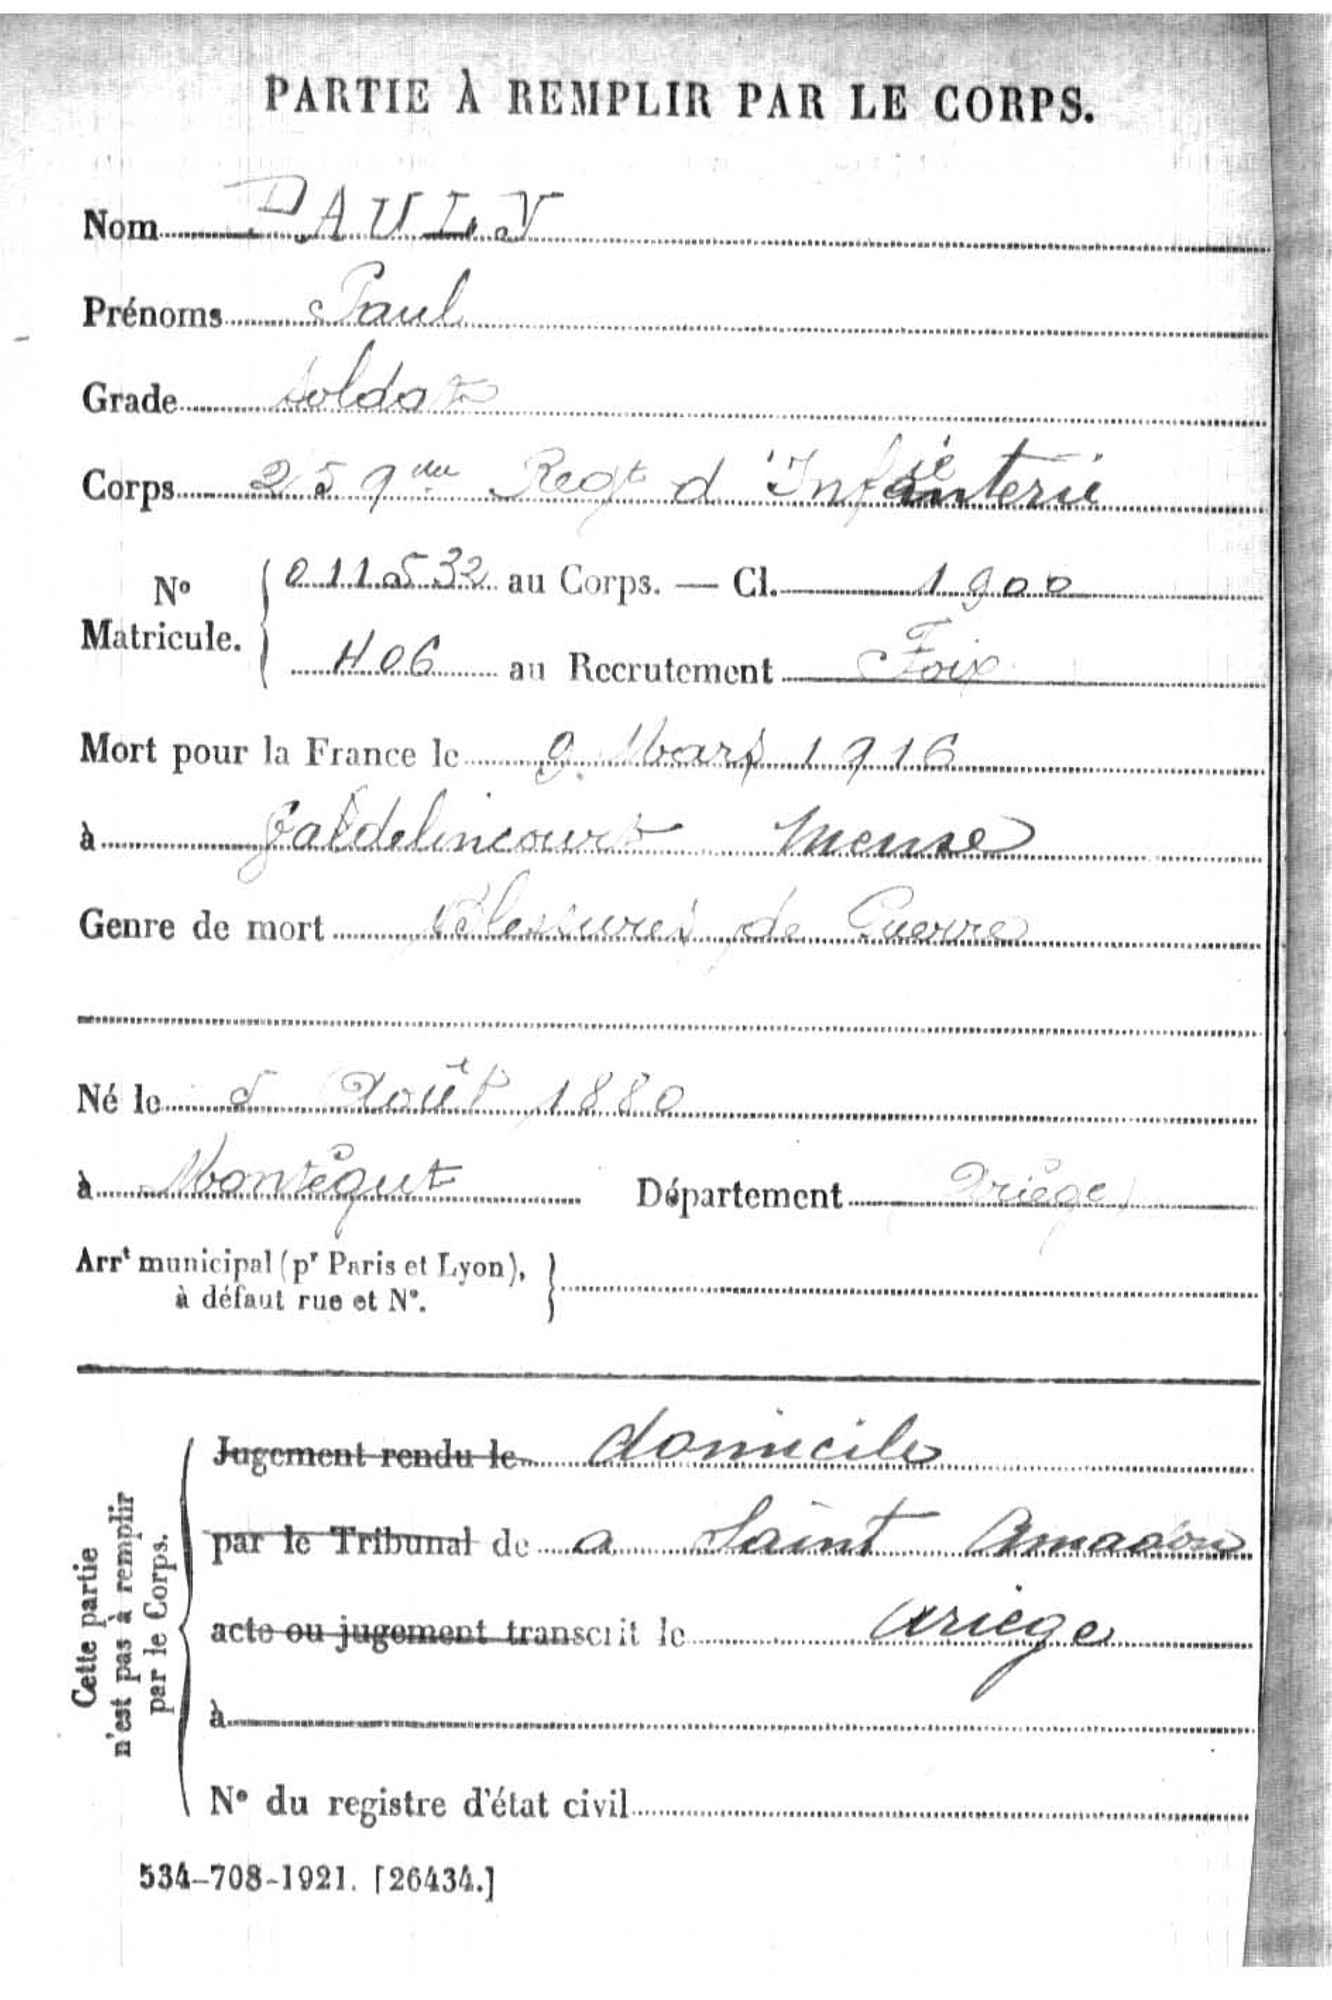 PARTIE À REMPLIR PAR LE CORPS.
Nom PAULY
Prénoms Paul
Grade soldat
Corps 259ème Regt d'Infanterie
No Matricule. 011532 au Corps. — Cl. 1900
406 au Recrutement Foix
Mort pour la France le 9 Mars 1916
à Jaldelincourt Meuse
Genre de mort Blessures de Guerre
Né le 5 Août 1880
à Montégut Département Ariège
Arrt municipal (pr Paris et Lyon),
à défaut rue et N°.
Cette partie
n'est pas à remplir
par le Corps.
Jugement rendu le domicile
par le Tribunal de a Saint Amadou
acte ou jugement transcrit le Ariège
à
N° du registre d'état civil
534-708-1921. [26434.]